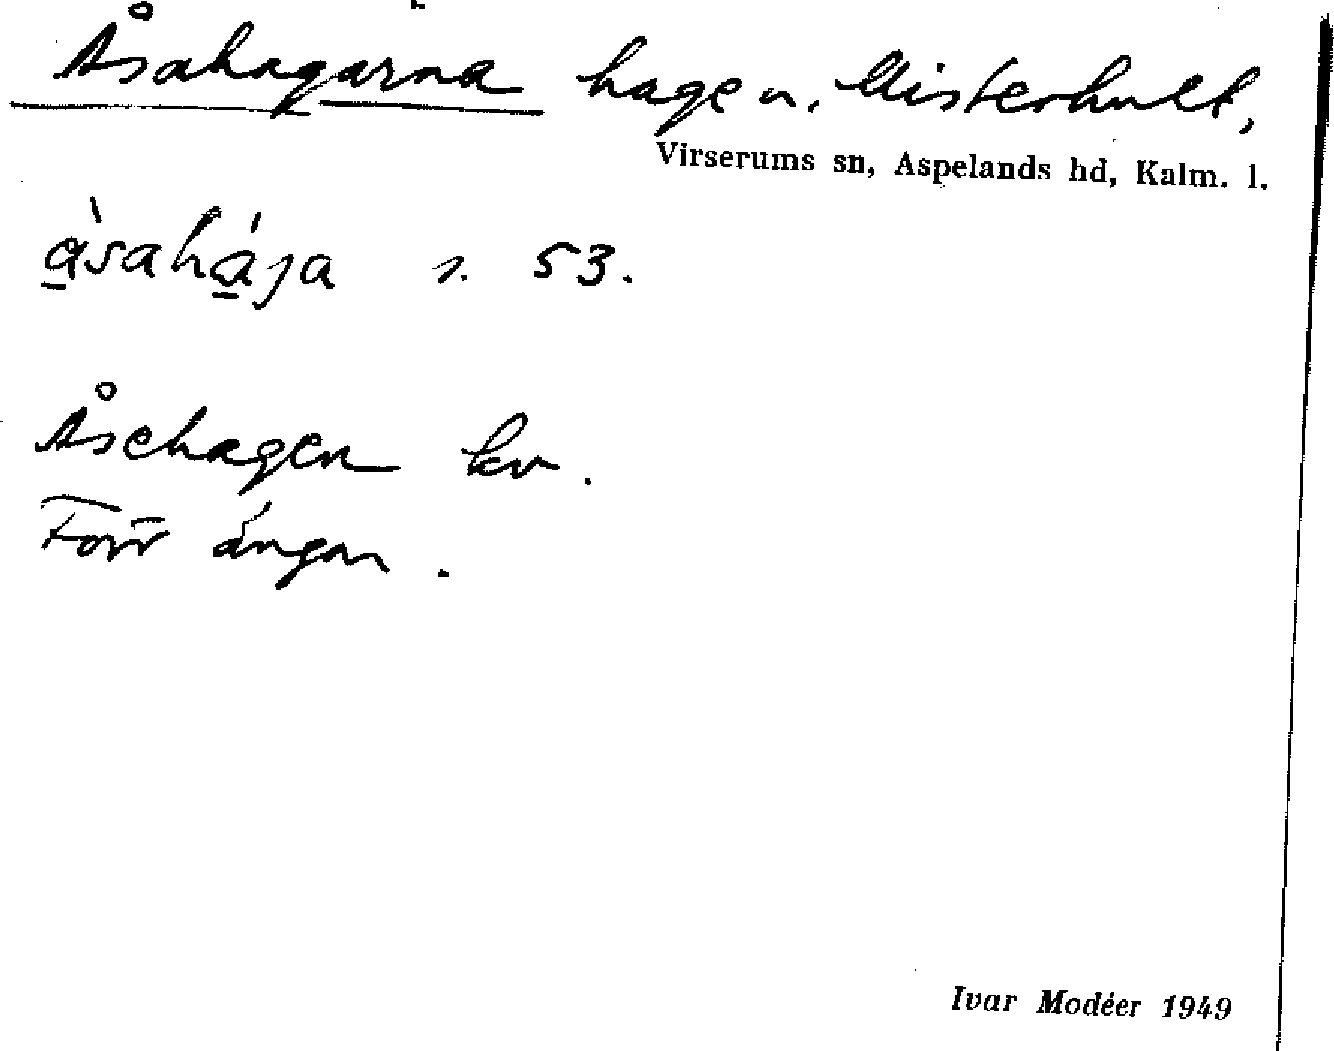 Åsahagarna hage u. Misterhult,
Virserums sn, Aspelands hd, Kalm. l.
a̱̍sahа̱́ja s. 53.
Åsehagen kv.
Förr ängar.
Ivar Modéer 1949